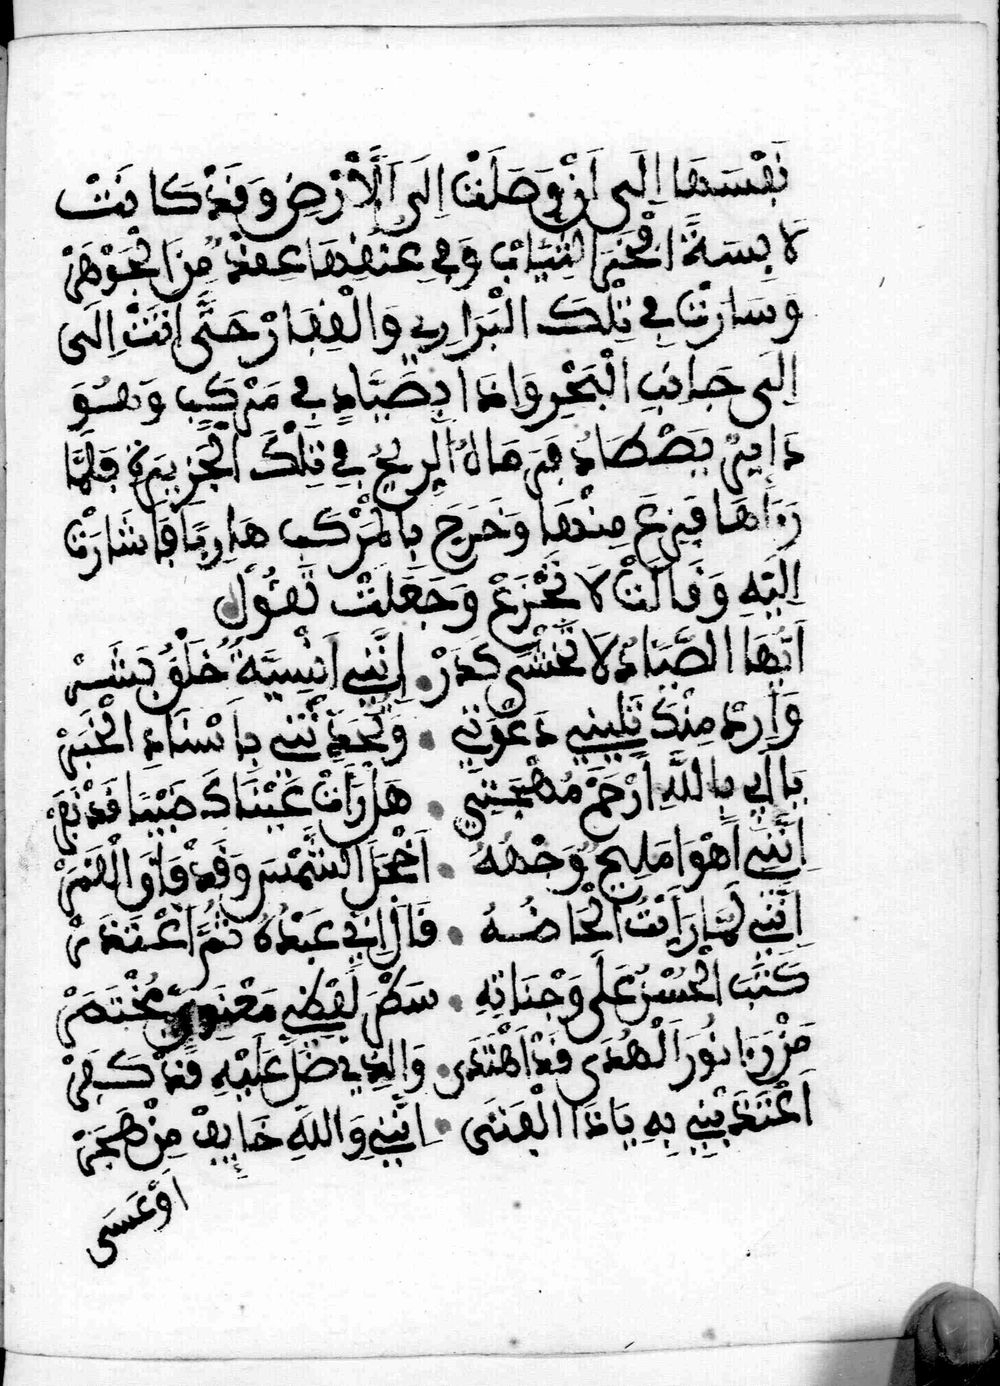 نَفْسَهَا إِلَى أَنْ وَصَلَتْ إِلَى الْأَرْضِ وَقَدْ كَانَتْ
لَابِسَةً أَفْخَرَ الثِّيَابِ وَفِي عُنُقِهَا عِقْدٌ مِنَ الْجَوْهَرْ
وَسَارَتْ فِي تِلْكَ الْبَرَارِي وَالْقِفَارْ حَتَّى اتَتْ إِلَى
إِلَى جَانِبِ الْبَحْرِ وَاذَا بِصَيَّادٍ فِي مَرْكَبٍ وَهُوَ
دَايِرْ يَصْطَادُ فَرَمَاهُ الرِّيحُ فِي تِلْكَ الْجَزِيرَةِ فَلَمَّا
رَءَاهَا فَزِعَ مِنْهَا وَخَرَجَ بِالْمَرْكَبِ هَارِبًا فَأَشَارَتْ
إِلَيْهِ وَقَالَتْ لَا تَجْزَعْ وَجَعَلَتْ تَقُولْ
أَيُّهَا الصَّيَّادُ لَا تَخْشَى كَدَرْ . إِنَّنِي انْسِيَّةٌ خَلْقُ بَشَرْ
وَارِدْ مِنْكَ تَلِبِّينِي دَعْوَتِي . وَنُحَدِّثْنِي بِاسْنَادِ الْخَبَرْ
يَا أَبِي بِاللَّهِ أَرْحَمْ مُهْجَتِي . هَلْ رَأَتْ عَيْنَاكَ حَبِيبًا قَدْ نَفَرْ
إِنَّنِي أَهْوَا مَلِيحٌ وَجْهُهُ . أَخْجَلَ الشَّمْسَ وَقَدْ فَاقَ الْقَمَرْ
إِنَّنِي لَمَّا رَأَيْتُ الْحَاضُهُ . قَالَ إِنِّي عَبْدُهُ ثُمَّ اعْتَذَرْ
كَتَبَ الْحُسْنُ عَلَى وَجَنَاتِهِ . سَطْرَ لَفْظِي مَعْنَوِيٍّ مُخْتَصَرْ
مَنْ رَءَا نُورَ الْهُدَى قَدْ اهْتَدَى . وَالَّذِي ضَلَّ عَلَيْهِ قَدْ كَفَرْ
اعْتَذَيْنِي بِهِ يَا ذَا الْفَتَى . إِنَّنِي وَاللَّهِ خَايِفْ مِنْ هَجَرْ
أَوْ عَسَى